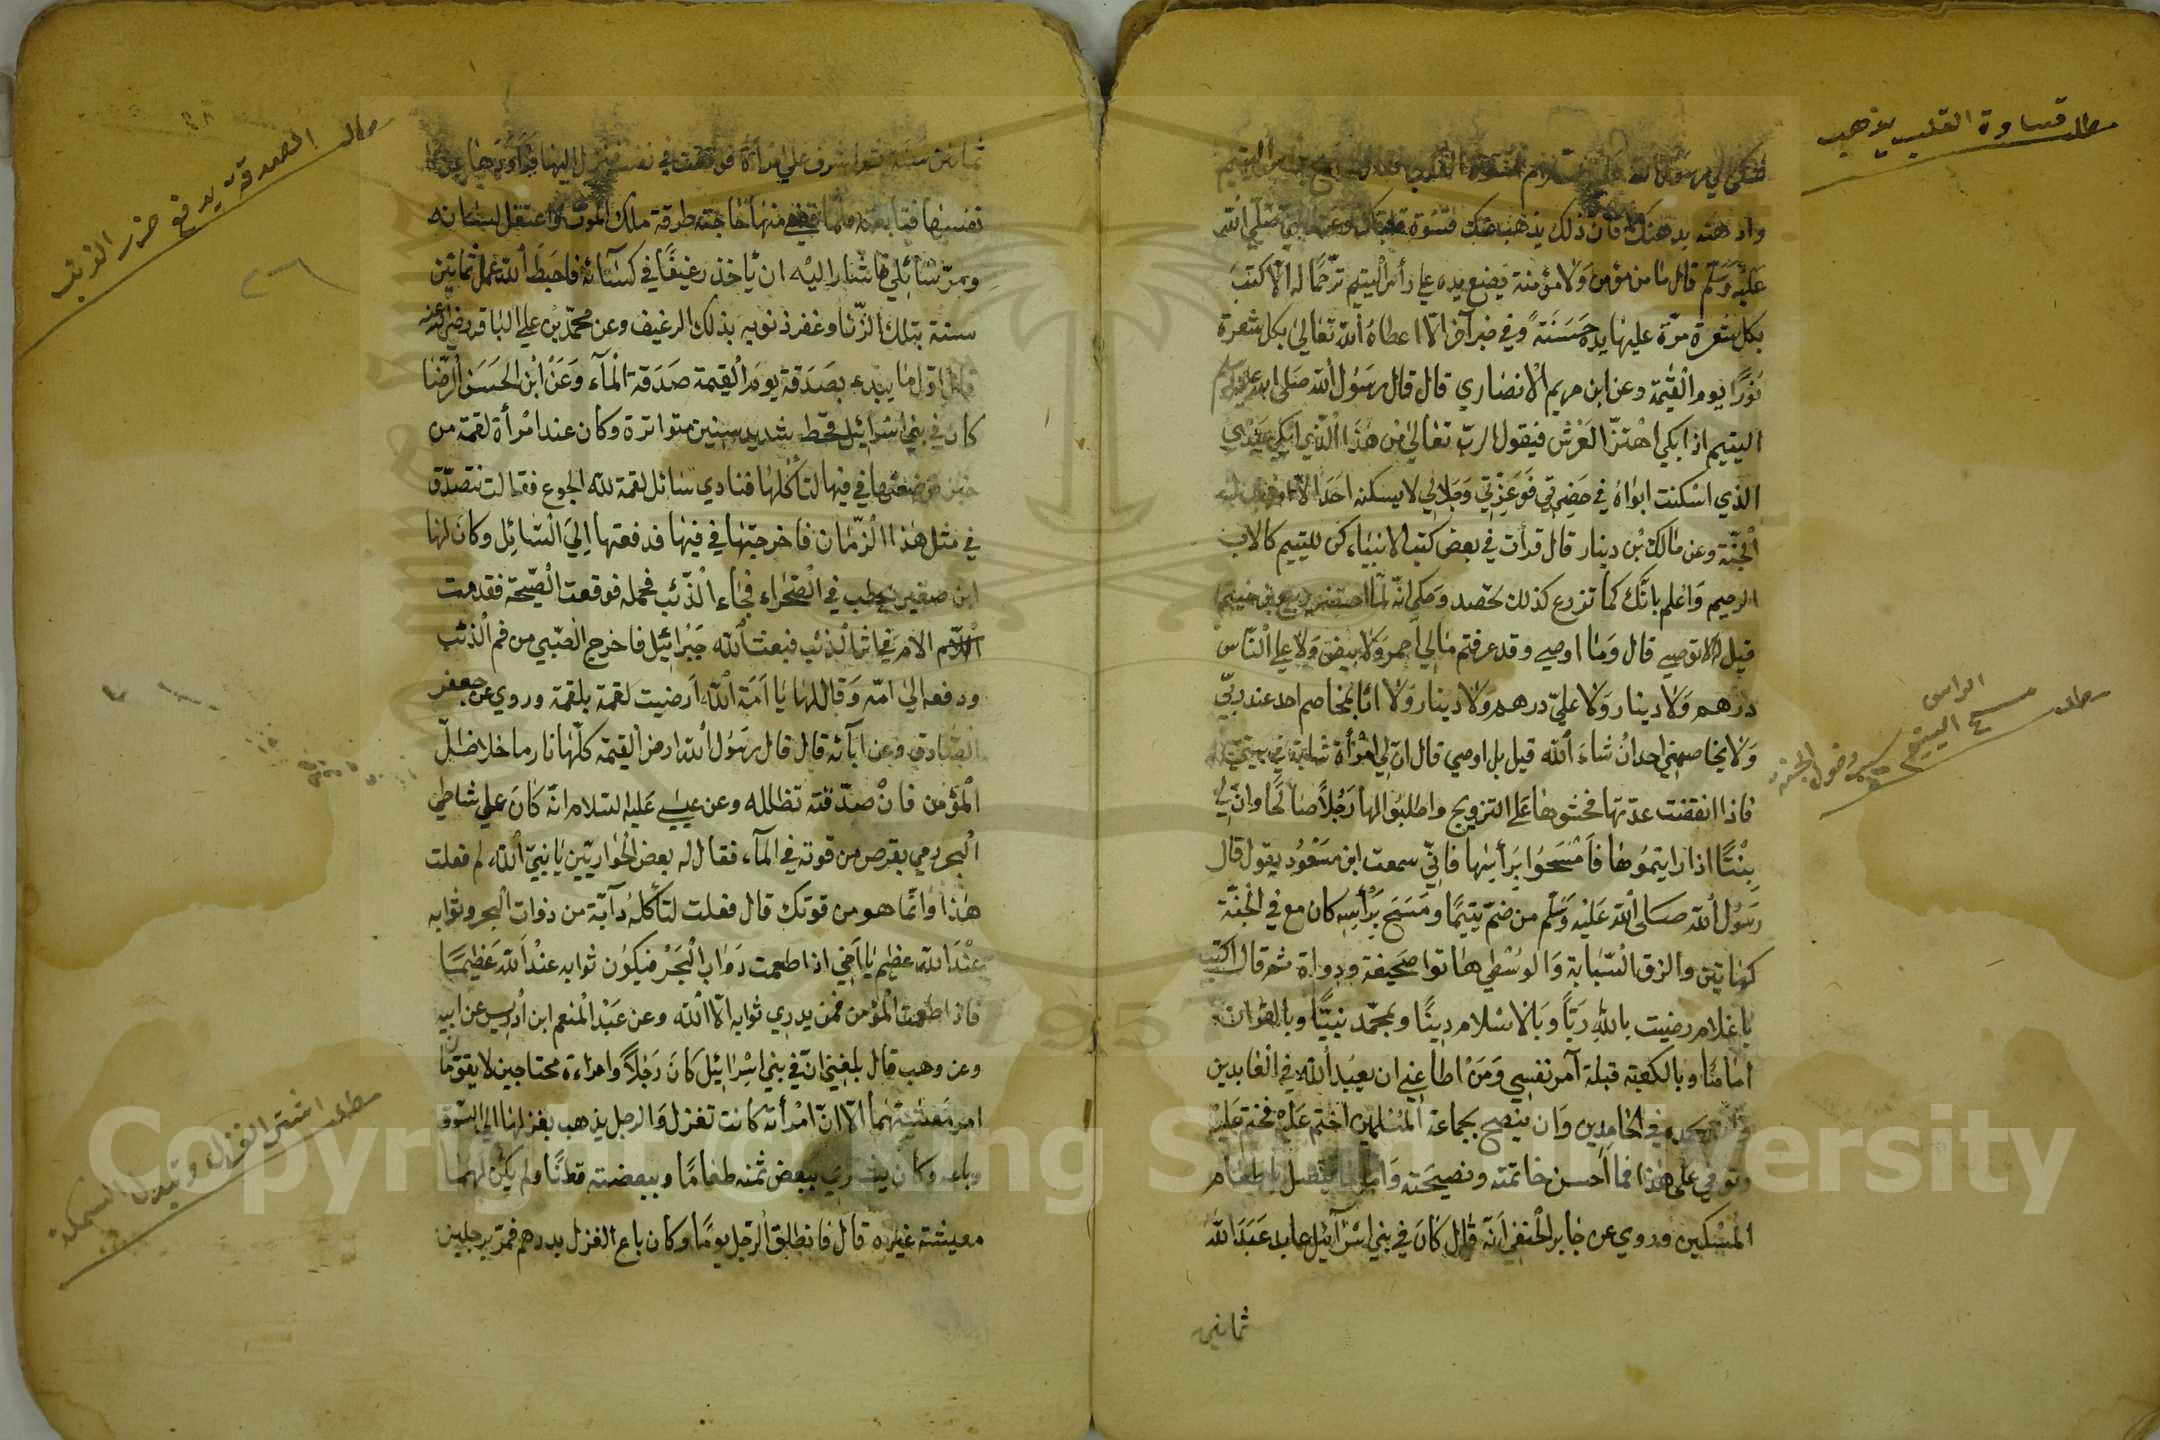 مطلب قساوة القلب يذهب
فشكى الى رسول الله
وادهنه بدهنك فان ذلك يذهب عنك قسوة قلبك وعن النبي صلى الله
عليه وسلم قال ما من مؤمن ولا مؤمنة يضع يده علي رأس اليتيم ترحما له الا كتب
بكل شعرة مرة عليها يده حسنة وفي خبر آخر الا اعطاه الله تعالى بكل شعرة
نورا يوم القيمة وعن ابن مريم الانصاري قال قال رسول الله صلى الله عليه وسلم
اليتيم اذا بكي اهتز العرش فيقول الرب تعالى من هذا الذي ابكي عبدي
الذي اسكنت ابواه في حضرتي فوعزتي وجلالي لا يسكنه احد الا
الجنة وعن مالك بن دينار قال قرأت في بعض كتب الانبياء كن لليتيم كالاب
الرحيم واعلم بانك كما تزرع كذلك تحصد وحكي انه لما احتضر ربيع بن خيثم
قيل الا توصي قال وما اوصي وقد عرفتم مالي احمر ولا ابيض ولا علي الناس
درهم ولا دينار ولا علي درهم ولا دينار ولا انا بمخاصم احد عند ربي
ولا يخاصمني احد ان شاء الله قيل بل اوصي قال ان لي امرأة شابة
مطلب مسح الراس اليتيم في دخول الجنة
فاذا انقضت عدتها فحثوها على التزويج واطلبوا لها رجلا صالحا وان لي
بنتا اذا رايتموها فامسحوا برأسها فاني سمعت ابن مسعود يقول قال
رسول الله صلى الله عليه وسلم من ضم يتيما ومسح برأسه كان مع في الجنة
كهاتين والزق السبابة والوسطى هاتوا صحيفة ودواة ثم قال اكتب
يا غلام رضيت بالله ربا وبالاسلام دينا وبمحمد نبيا وبالقران
اماما وبالكعبة قبلة آمر نفسي ومن اطاعني ان يعبد الله في العابدين
ويحمده في الحامدين وان ينصح بجماعة المسلمين اختم عليه فختم عليه
وتوفي على هذا فما احسن خاتمته ونصيحته واما ما يتصل باطعام
المسكين وروي عن جابر الحنفي انه قال كان في بني اسرآئيل عابد عبد الله
ثمانين
مطلب الصدقة يدفع ضرر الذئب
ثمانين سنة
نفسها فتابعته فلما قضي منها حاجته طرقه ملك الموت واعتقل لسانه
ومر سائلي فاشار اليه ان يأخذ رغيفا في كسآئه فاحبط الله عمل ثمانين
سنة بتلك الزنا وغفر ذنوبه بذلك الرغيف وعن محمد بن علي الباقر رضى الله عنه
قال اول ما يبدء بصدقة يوم القيمة صدقة المآء وعن ابن الحسن الرضا
كان في بني اسرائيل قحط شديد سنين متواترة وكان عند امرأة لقمة من
خبز فوضعتها في فيها لتأكلها فنادي سائل لقمة لله الجوع فقالت تتصدق
في مثل هذا الزمان فاخرجتها في فيها فدفعتها الي السائل وكان لها
ابن صغير يحطب في الصحراء فجاء الذئب فحمله فوقعت الصيحة فقدمت
الام في اثر الذئب فبعث الله جبرائيل فاخرج الصبي من فم الذئب
ودفعه الي امه وقال لها يا امة الله ارضيت لقمة بلقمة وروي عن جعفر
الصادق وعن آبآئه قال قال رسول الله ارض القيمة كلها نار ما خلا ظل
المؤمن فان صدقته تظلله وعن عيسي عليه السلام انه كان علي شاطي
البحر رمي بقرص من قوته في المآء فقال له بعض الحواريين يا نبي الله لم فعلت
هذا وانما هو من قوتك قال فعلت لتأكله دآبة من دوات البحر وثوابه
عند الله عظيم يا اخي اذا اطعمت دواب البحر فيكون ثوابه عند الله عظيما
فاذا اطعمت المؤمن فمن يدري ثوابه الا الله وعن عبد المنعم ابن ادريس عن ابيه
وعن وهب قال بلغني ان في بني اسرائيل كان رجلا وامراءة محتاجين لا يقوما
مطلب اشترى الغزل وتبدل السمكة
امر معيشتهما الا ان امرأته كانت تغزل والرجل يذهب بغزلها الي السوق
وباعه وكان يشتري ببعض ثمنه طعاما وببعضه قطنا ولم يكن لهما
معيشة غيره قال فانطلق الرجل يوما وكان باع الغزل بدرهم فمر برجلين
Copyright © King Saud University
1957